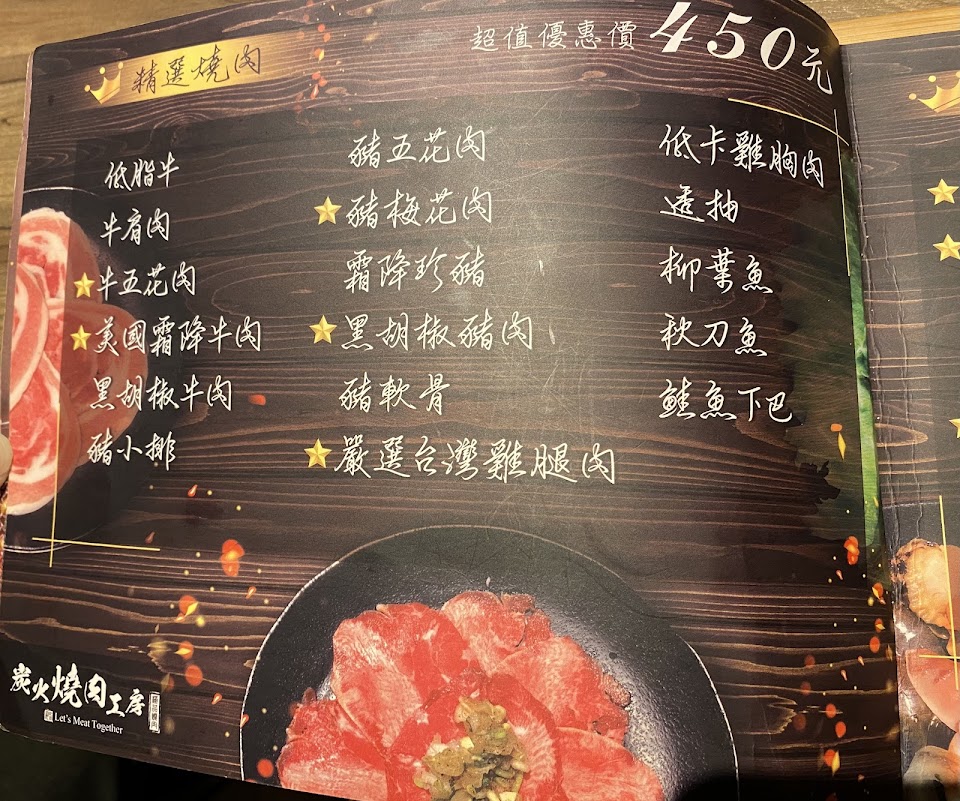 精選燒肉
超值優惠價450元
低脂牛
牛肩肉
牛五花肉
美國霜降牛肉
黑胡椒牛肉
豬小排
豬五花肉
豬梅花肉
霜降珍豬
黑胡椒豬肉
豬軟骨
嚴選台灣雞腿肉
低卡雞胸肉
透抽
柳葉魚
秋刀魚
鮭魚下巴
炭火燒肉工房
Let's Meat Together